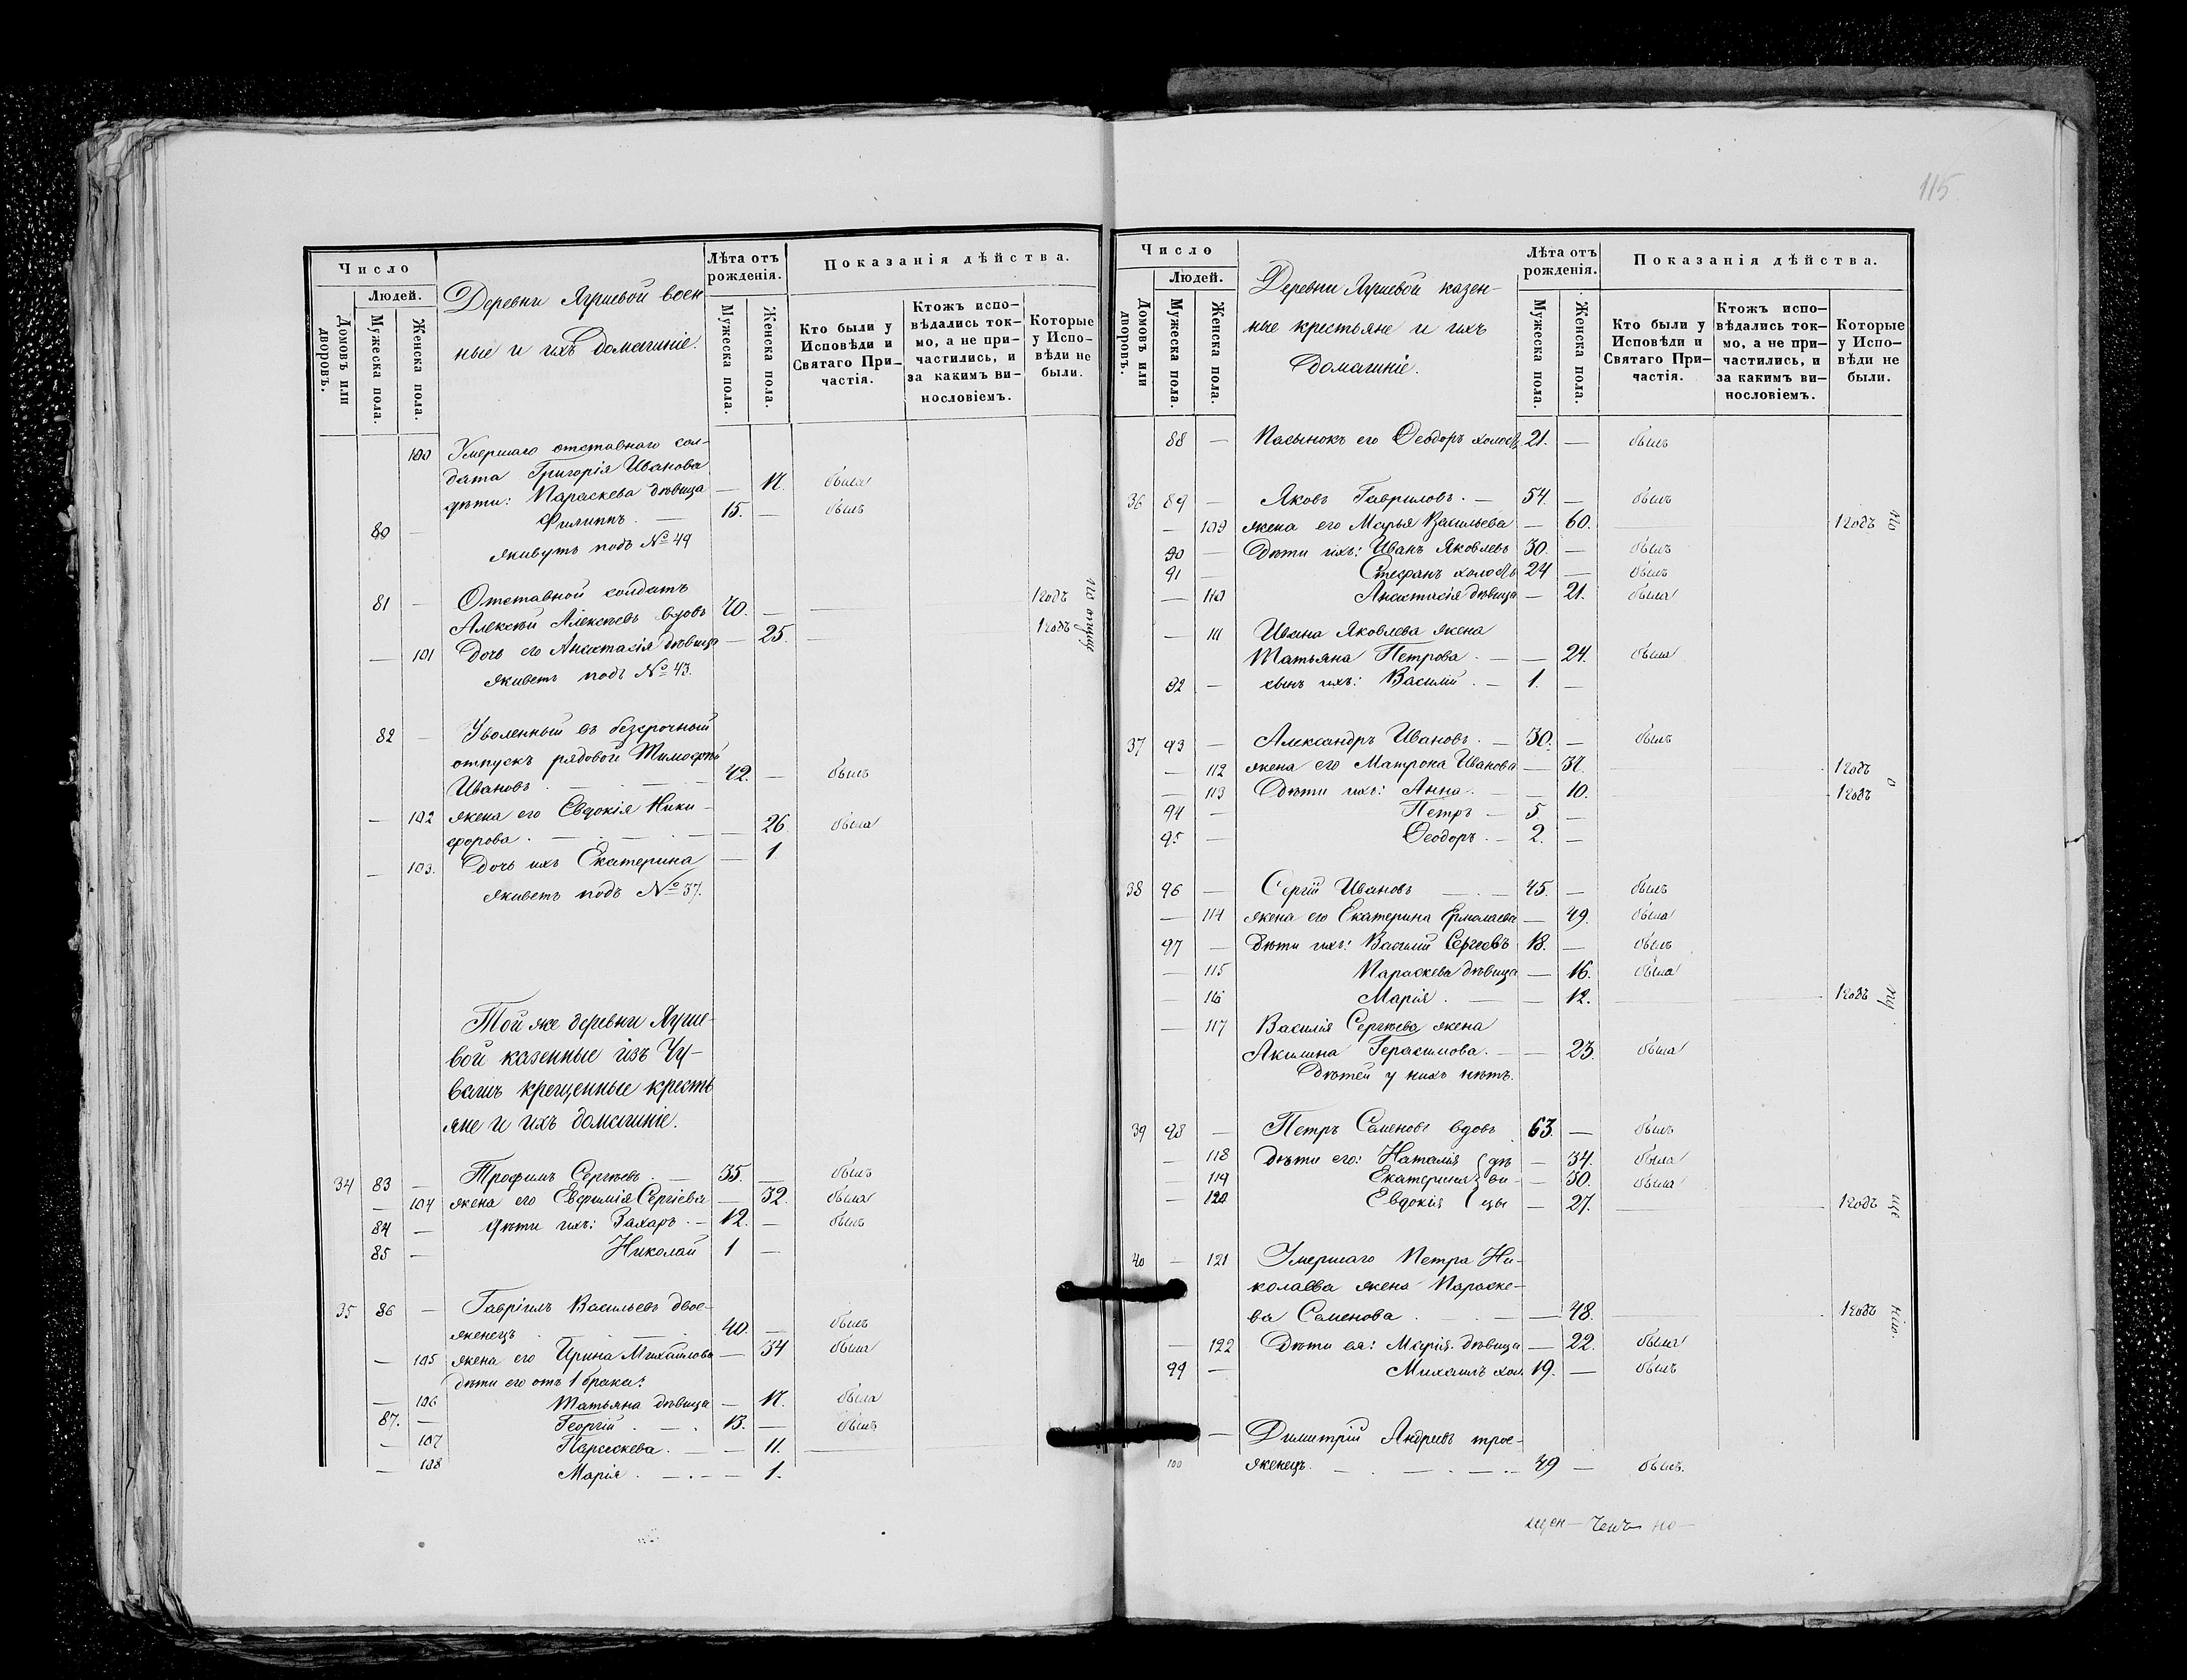 Число
Людей.
Домовъ или дворовъ.
Мужеска пола.
Женска пола.
Деревни Яушевой воен
ные и ихъ домашніе.
Лѣта отъ рожденія.
Мужеска пола.
Женска пола.
Показанія дѣйства.
Кто были у Исповѣди и Святаго Причастія.
Ктожъ исповѣдались токмо, а не причастились, и за какимъ винословіемъ.
Которые у Исповѣди не были.
100 Умершаго отставнаго сол-
дата Григорія Иванова
дѣти: Параскева дѣвица — 17. была
80 — Филиппъ. — 15. — былъ
живутъ подъ № 49
81 — Отставной солдатъ
Алексѣй Алексѣевъ вдовъ 70. — 1 годъ
— 101 Дочь его Анастасія дѣвица — 25. 1 годъ
живетъ подъ № 43.
по опущ
82 — Уволенный въ безсрочный
отпускъ рядовой Тимофей
Ивановъ 42. — былъ
— 102 жена его Евдокія Ники-
форова. — 26. была
— 103. Дочь ихъ Екатерина — 1
живетъ подъ № 37.
Той же деревни Яуше-
вой казенные изъ Чу-
вашъ крещенные кресть
яне и ихъ домашніе.
34 83 — Трофимъ Сергѣевъ 35. — былъ
— 104 жена его Евфимія Сергіева — 32. была
84 — дѣти ихъ: Захаръ. — 12. — былъ
85 — Николай 1 —
35 86 — Гавріилъ Васильевъ двое-
женецъ 40. — былъ
— 105 жена его Ирина Михайлова — 34 была
дѣти его отъ 1 брака:
— 106 Татьяна дѣвица — 17. была
87. — Георгій. — 13. — былъ
— 107 Параскева. — 11.
— 108 Марія. — 1.
115
Число
Людей.
Домовъ или дворовъ.
Мужеска пола.
Женска пола.
Деревни Яушевой казен-
ные крестьяне и ихъ
Домашніе.
Лѣта отъ рожденія.
Мужеска пола.
Женска пола.
Показанія дѣйства.
Кто были у Исповѣди и Святаго Причастія.
Ктожъ исповѣдались токмо, а не причастились, и за какимъ винословіемъ.
Которые у Исповѣди не были.
88 — Пасынокъ его Ѳеодоръ холост. 21. — былъ
36 89 — Яковъ Гавриловъ. — 54. — былъ
— 109 жена его Марья Васильева — 60. 1 годъ по
90 — Дѣти ихъ: Иванъ Яковлевъ 30. — былъ
91 — Стефанъ холостъ 24 — былъ
— 110 Анастасія дѣвица — 21. была
— 111 Ивана Яковлева жена
Татьяна Петрова. — 24. была
92 — сынъ ихъ: Василій. — 1. —
37 93 — Александръ Ивановъ. — 30. — былъ
— 112 жена его Матрона Иванова — 37. 1 годъ о
— 113 Дѣти ихъ: Анна. — 10. 1 годъ
94 — Петръ — 5 —
95 — Ѳеодоръ. — 2. —
38 96 — Сергій Ивановъ 45. — былъ
— 114 жена его Екатерина Ермолаева — 49. была
97 — Дѣти ихъ: Василій Сергеевъ 18. — былъ
— 115 Параскева дѣвица — 16. была
— 116 Марія. — 12. 1 годъ пу
— 117 Василія Сергѣева жена
Акилина Герасимова. — 23. была
Дѣтей у нихъ нѣтъ.
39 98 — Петръ Семеновъ вдовъ 63. — былъ
— 118 Дѣти его: Наталія дѣ — 34. была
— 119 Екатерина ви — 30. была
— 120 Евдокія цы — 27. 1 годъ ще
40 — 121 Умершаго Петра Ни-
колаева жена Параске-
ва Семенова — 48. 1 годъ нію.
— 122 Дѣти ея: Марія дѣвица — 22. была
99 — Михаилъ хол. 19. — былъ
— Димитрій Андреевъ трое-
100 женецъ. — 49 — былъ.
щен—